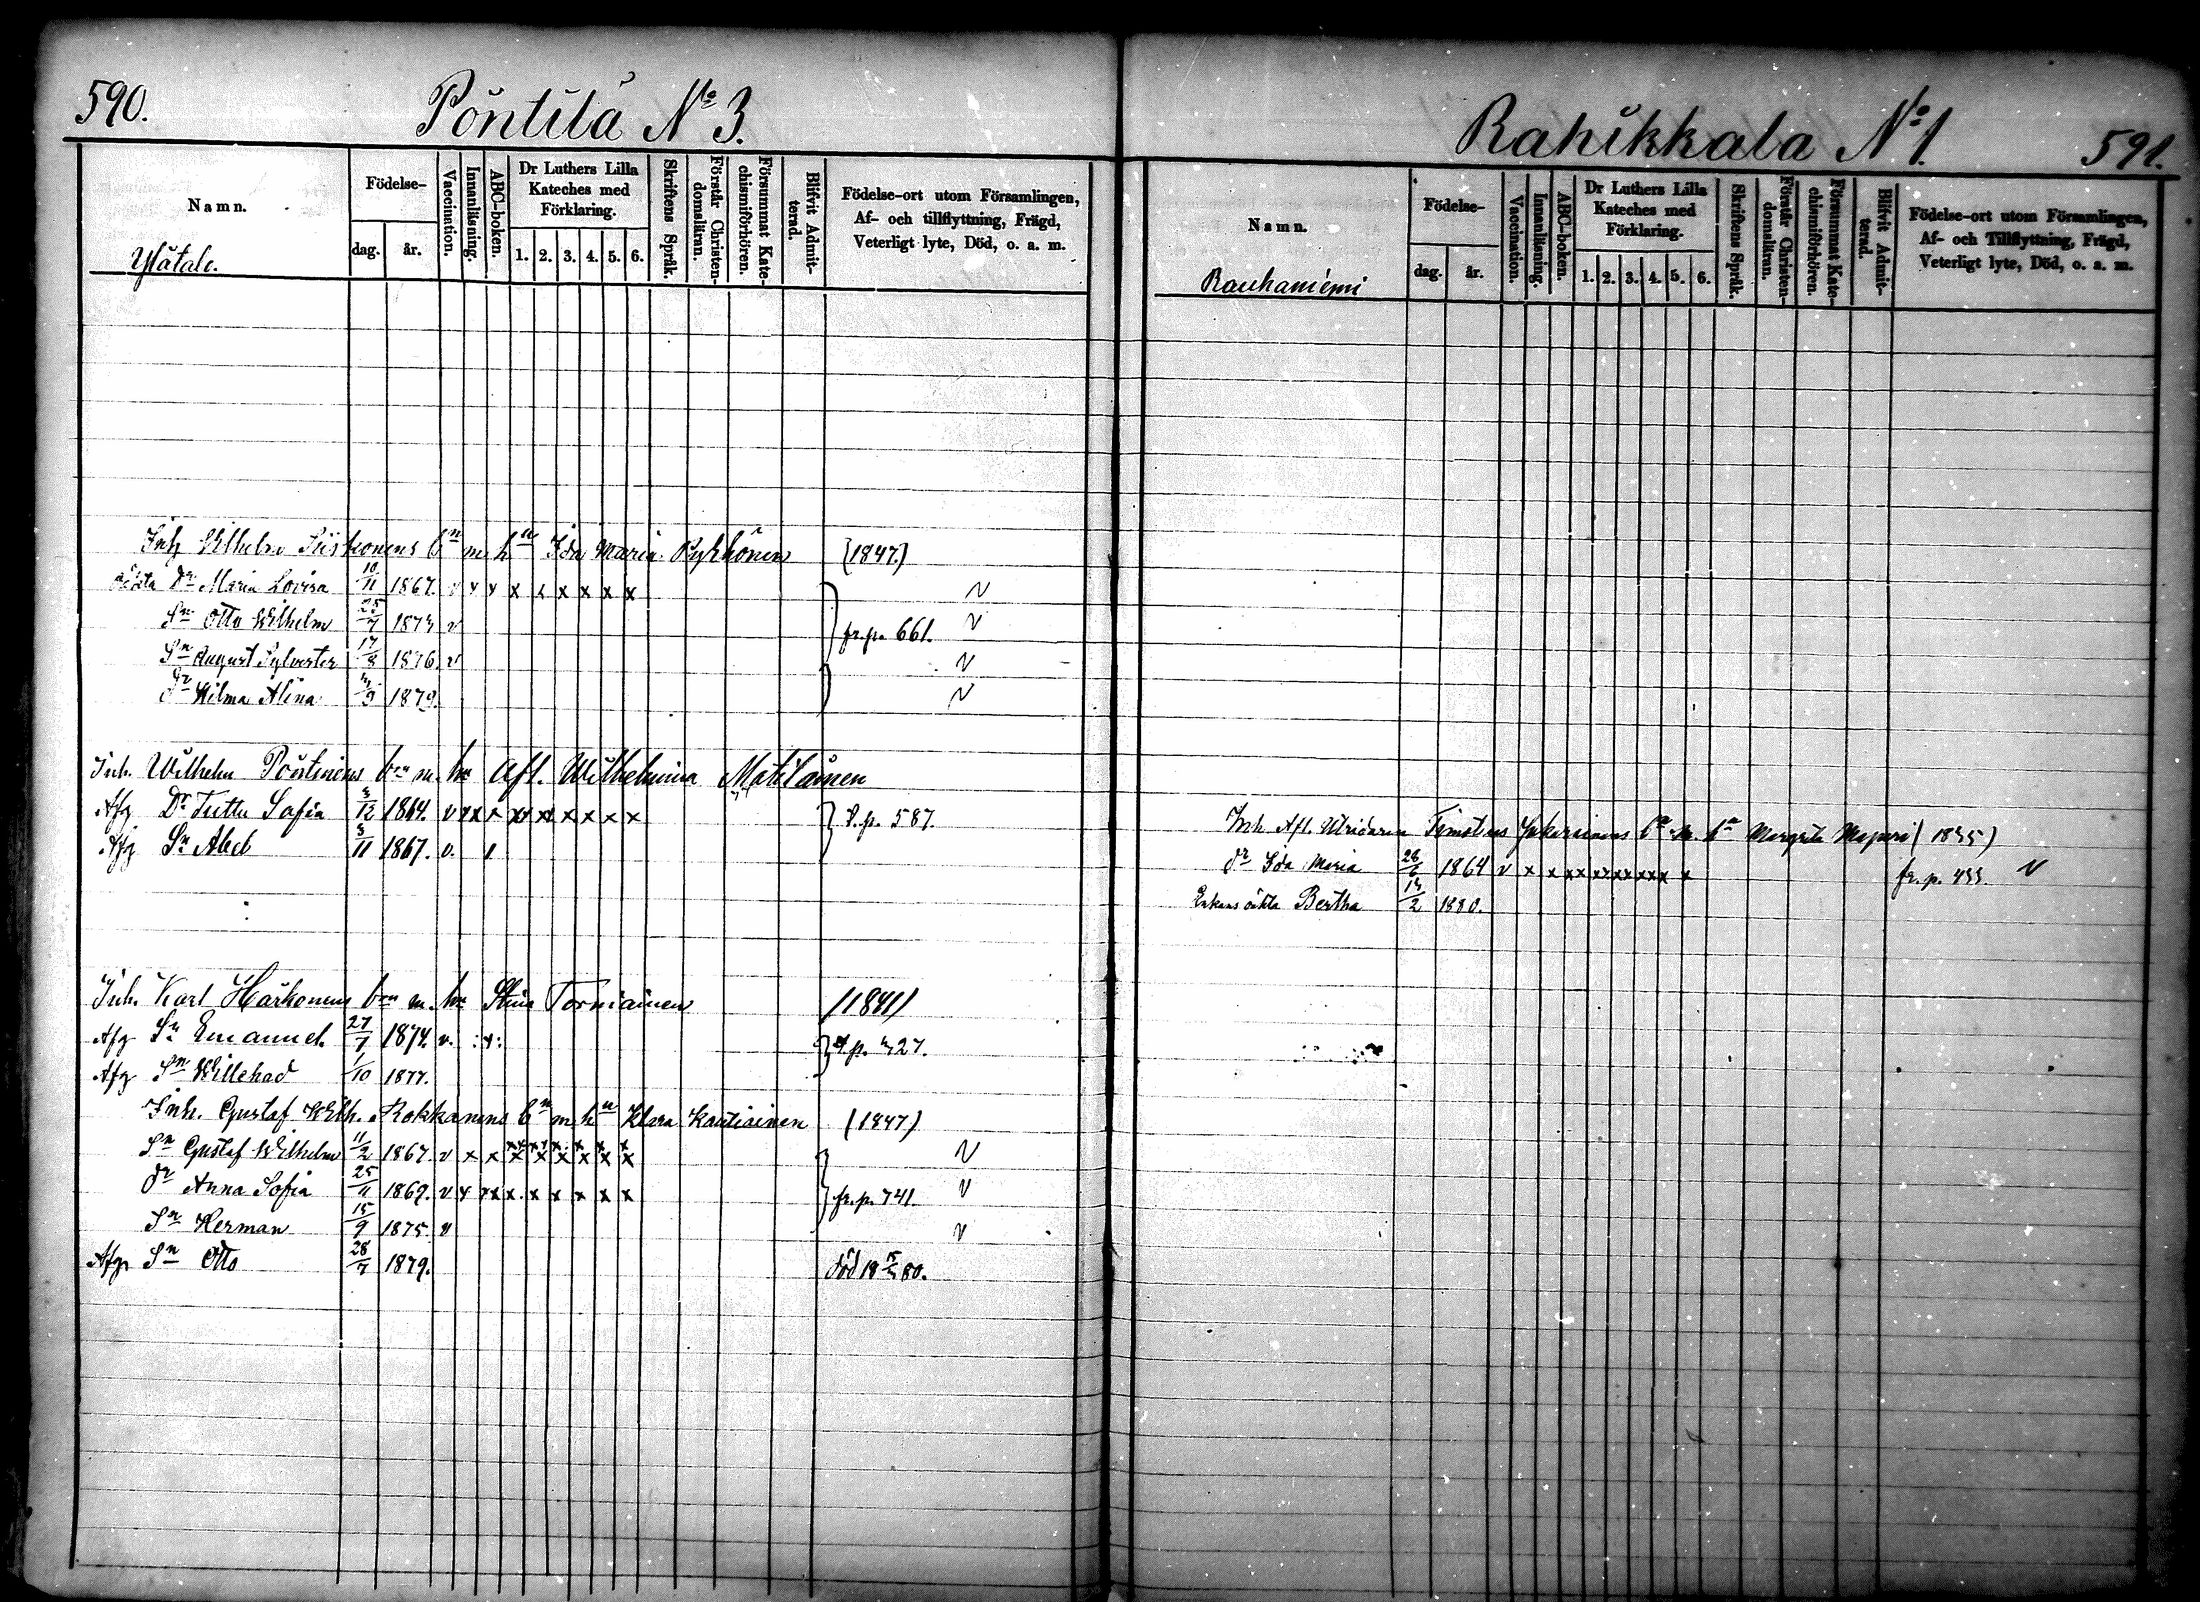 590.
Pöntilä No 3.
Namn.
Födelse-
dag.
år.
Vaccination.
Innanläsning.
ABC-boken.
Dr Luthers Lilla
Kateches med
Förklaring.
1. 2. 3. 4. 5. 6.
Skriftens Språk.
Förstår Christen-
domsläran.
Försummat Kate-
chismiförhören.
Blifvit Admit-
terad.
Födelse-ort utom Församlingen,
Af- och tillflyttning, Frägd,
Veterligt lyte, Död, o. a. m.
Ylätalo.
Inh Wilhelm bn m hu Ida Maria (1847)
oäkta Dr Maria Lovisa 10/11 1867. v x x x x x x x x v
Sn Otto Wilhelm 25/7 1873 v fr. p. 661. v
Sn August Sylvester 17/8 1876. v v
dr Wilma Alina 1879. v
Inh. Wilhelm bn m. hu Afl. Wilhelmina Matilainen
Afg Dr Sofia 3/12 1864. v xx x xx xx x x x x t. p. 587.
Afg Sn Abel 3/11 1867. v. 1
Inh. Karl Härkönens bn m. hu Stina Torniainen /1841/
Afg Sn Emanuel 27/7 1874. v. :x:
Afg Sn Willehad 1/10 1877.
Inh. Gustaf Wilh. Kokkonens bn m hu Klara Kautiainen (1847)
Sn Gustaf Wilhelm 11/2 1867. v x x x x x x x x v
dr Anna Sofia 25/11 1869. v x xx x. x x x x x fr. p. 741. v
Sn Herman 15/9 1875 v v
Afg. Sn Otto 28/7 1879. död 18 80.
Rahikkala No 1.
591.
Namn.
Födelse-
dag.
år.
Vaccination.
Innanläsning.
ABC-boken.
Dr Luthers Lilla
Kateches med
Förklaring.
1. 2. 3. 4. 5. 6.
Skriftens Språk.
Förstår Christen-
domsläran.
Försummat Kate-
chismiförhören.
Blifvit Admit-
terad.
Födelse-ort utom Församlingen,
Af- och Tillflyttning, Frägd,
Veterligt lyte, Död, o. a. m.
Rauhaniemi
Inh. Afl. bn m. Margreta (1835)
dr Ida Maria 28/6 1864 v x x xx xx xx xx x x fr. p. v
Enkans oäkta Bertha 1880.